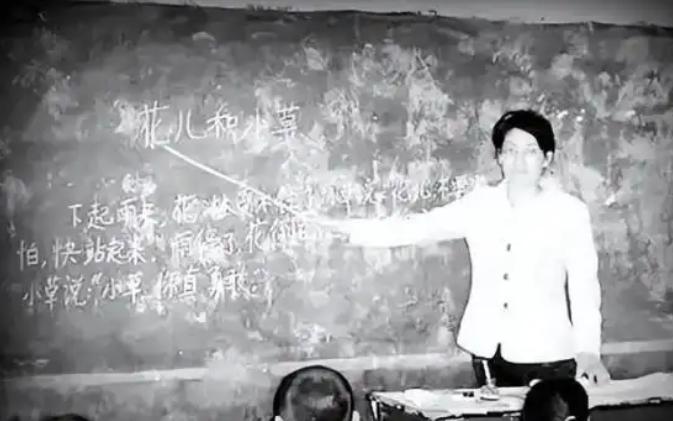 花儿和小草
下起雨来,花 小草说:“花儿不要
怕,快站起来。”雨停了,花儿
小草说:“小草,你真勇敢。”